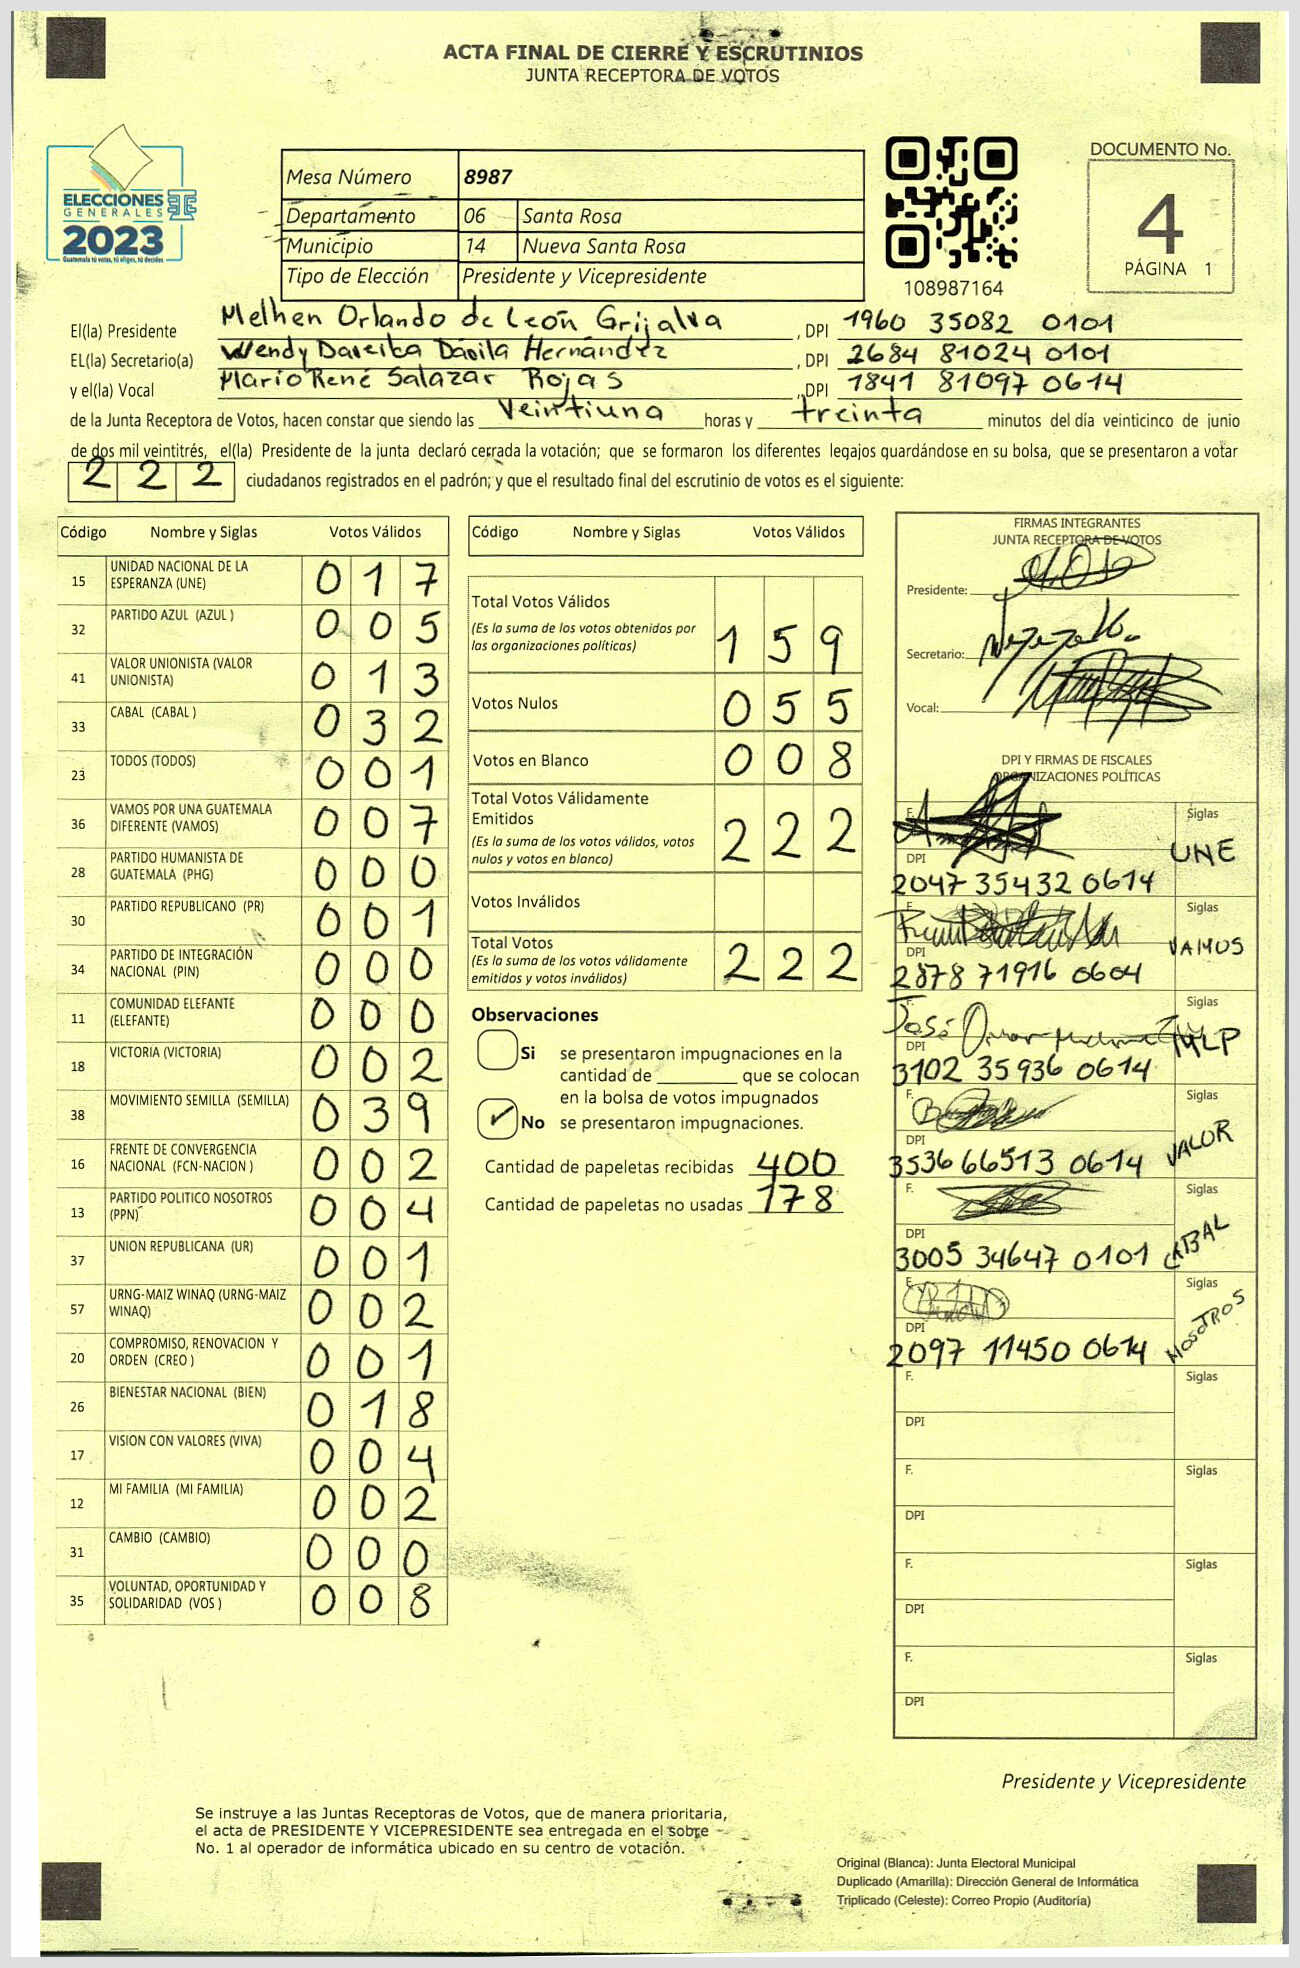 ACTA FINAL DE CIERRE Y ESCRUTINIOS
JUNTA RECEPTORA DE VOTOS
ELECCIONES
GENERALES
2023
Guatemala tú votas, tú eliges, tú decides
Mesa Número 8987
Departamento 06 Santa Rosa
Municipio 14 Nueva Santa Rosa
Tipo de Elección Presidente y Vicepresidente
108987164
DOCUMENTO No.
4
PÁGINA 1
El(la) Presidente Melhen Orlando de León Grijalva , DPI 1960 35082 0101
EL(la) Secretario(a) Wendy Dávila Hernández , DPI 2684 81024 0101
y el(la) Vocal Mario René Salazar Rojas , DPI 1841 81097 0614
de la Junta Receptora de Votos, hacen constar que siendo las Veintiuna horas y treinta minutos del día veinticinco de junio
de dos mil veintitrés, el(la) Presidente de la junta declaró cerrada la votación; que se formaron los diferentes legajos guardándose en su bolsa, que se presentaron a votar
222 ciudadanos registrados en el padrón; y que el resultado final del escrutinio de votos es el siguiente:
Código Nombre y Siglas Votos Válidos
15 UNIDAD NACIONAL DE LA ESPERANZA (UNE) 017
32 PARTIDO AZUL (AZUL ) 005
41 VALOR UNIONISTA (VALOR UNIONISTA) 013
33 CABAL (CABAL ) 032
23 TODOS (TODOS) 001
36 VAMOS POR UNA GUATEMALA DIFERENTE (VAMOS) 007
28 PARTIDO HUMANISTA DE GUATEMALA (PHG) 000
30 PARTIDO REPUBLICANO (PR) 001
34 PARTIDO DE INTEGRACIÓN NACIONAL (PIN) 000
11 COMUNIDAD ELEFANTE (ELEFANTE) 000
18 VICTORIA (VICTORIA) 002
38 MOVIMIENTO SEMILLA (SEMILLA) 039
16 FRENTE DE CONVERGENCIA NACIONAL (FCN-NACION ) 002
13 PARTIDO POLITICO NOSOTROS (PPN) 004
37 UNION REPUBLICANA (UR) 001
57 URNG-MAIZ WINAQ (URNG-MAIZ WINAQ) 002
20 COMPROMISO, RENOVACION Y ORDEN (CREO ) 001
26 BIENESTAR NACIONAL (BIEN) 018
17 VISION CON VALORES (VIVA) 004
12 MI FAMILIA (MI FAMILIA) 002
31 CAMBIO (CAMBIO) 000
35 VOLUNTAD, OPORTUNIDAD Y SOLIDARIDAD (VOS ) 008
Código Nombre y Siglas Votos Válidos
Total Votos Válidos
(Es la suma de los votos obtenidos por
las organizaciones políticas) 159
Votos Nulos 055
Votos en Blanco 008
Total Votos Válidamente
Emitidos
(Es la suma de los votos válidos, votos
nulos y votos en blanco) 222
Votos Inválidos
Total Votos
(Es la suma de los votos válidamente
emitidos y votos inválidos) 222
Observaciones
Si se presentaron impugnaciones en la
cantidad de ________ que se colocan
en la bolsa de votos impugnados
✓ No se presentaron impugnaciones.
Cantidad de papeletas recibidas 400
Cantidad de papeletas no usadas 178
FIRMAS INTEGRANTES
JUNTA RECEPTORA DE VOTOS
Presidente:
Secretario:
Vocal:
DPI Y FIRMAS DE FISCALES
ORGANIZACIONES POLÍTICAS
F. Siglas
DPI UNE
2047 35432 0614
F. Siglas
DPI VAMOS
2878 71916 0604
F. José Siglas
DPI MLP
3102 35936 0614
F. Siglas
DPI VALOR
3536 66513 0614
F. Siglas
DPI CABAL
3005 34647 0101
F. Siglas
DPI NOSOTROS
2097 11450 0614
F. Siglas
DPI
F. Siglas
DPI
F. Siglas
DPI
F. Siglas
DPI
Presidente y Vicepresidente
Se instruye a las Juntas Receptoras de Votos, que de manera prioritaria,
el acta de PRESIDENTE Y VICEPRESIDENTE sea entregada en el sobre
No. 1 al operador de informática ubicado en su centro de votación.
Original (Blanca): Junta Electoral Municipal
Duplicado (Amarilla): Dirección General de Informática
Triplicado (Celeste): Correo Propio (Auditoría)